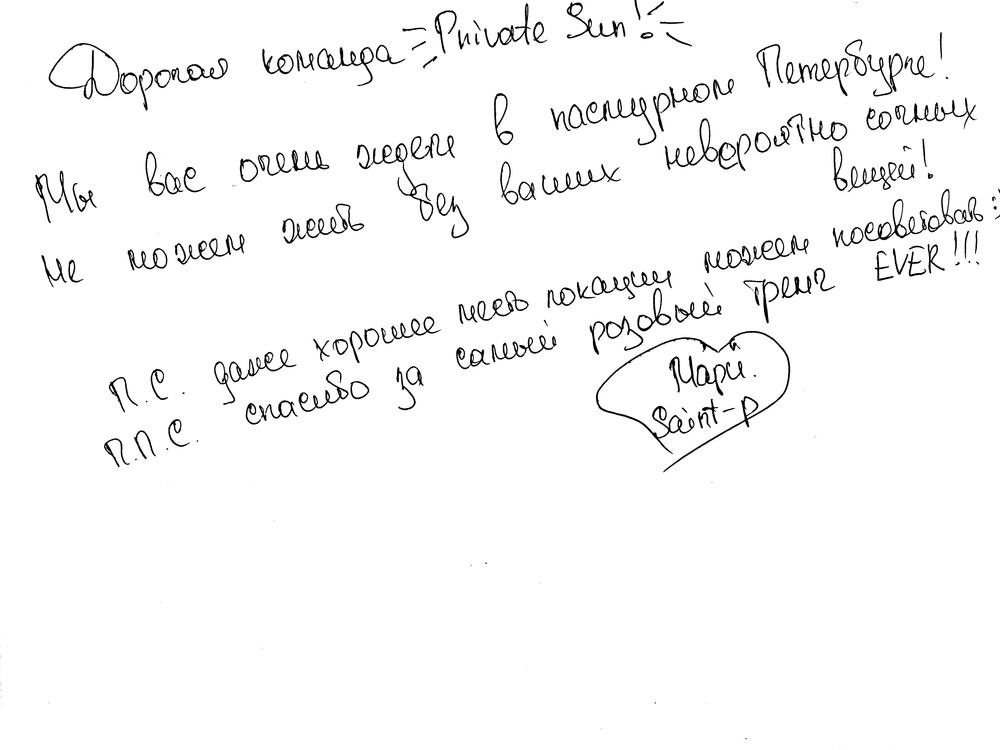 Дорогая команда Private Sun!
Мы вас очень ждем в пасмурном Петербурге!
не можем жить без ваших невероятно сочных
вещей!
П.С. даже хорошее место локации можем посоветовать :)
П.П.С. спасибо за самый розовый тренч EVER!!!
Мари.
Saint-P